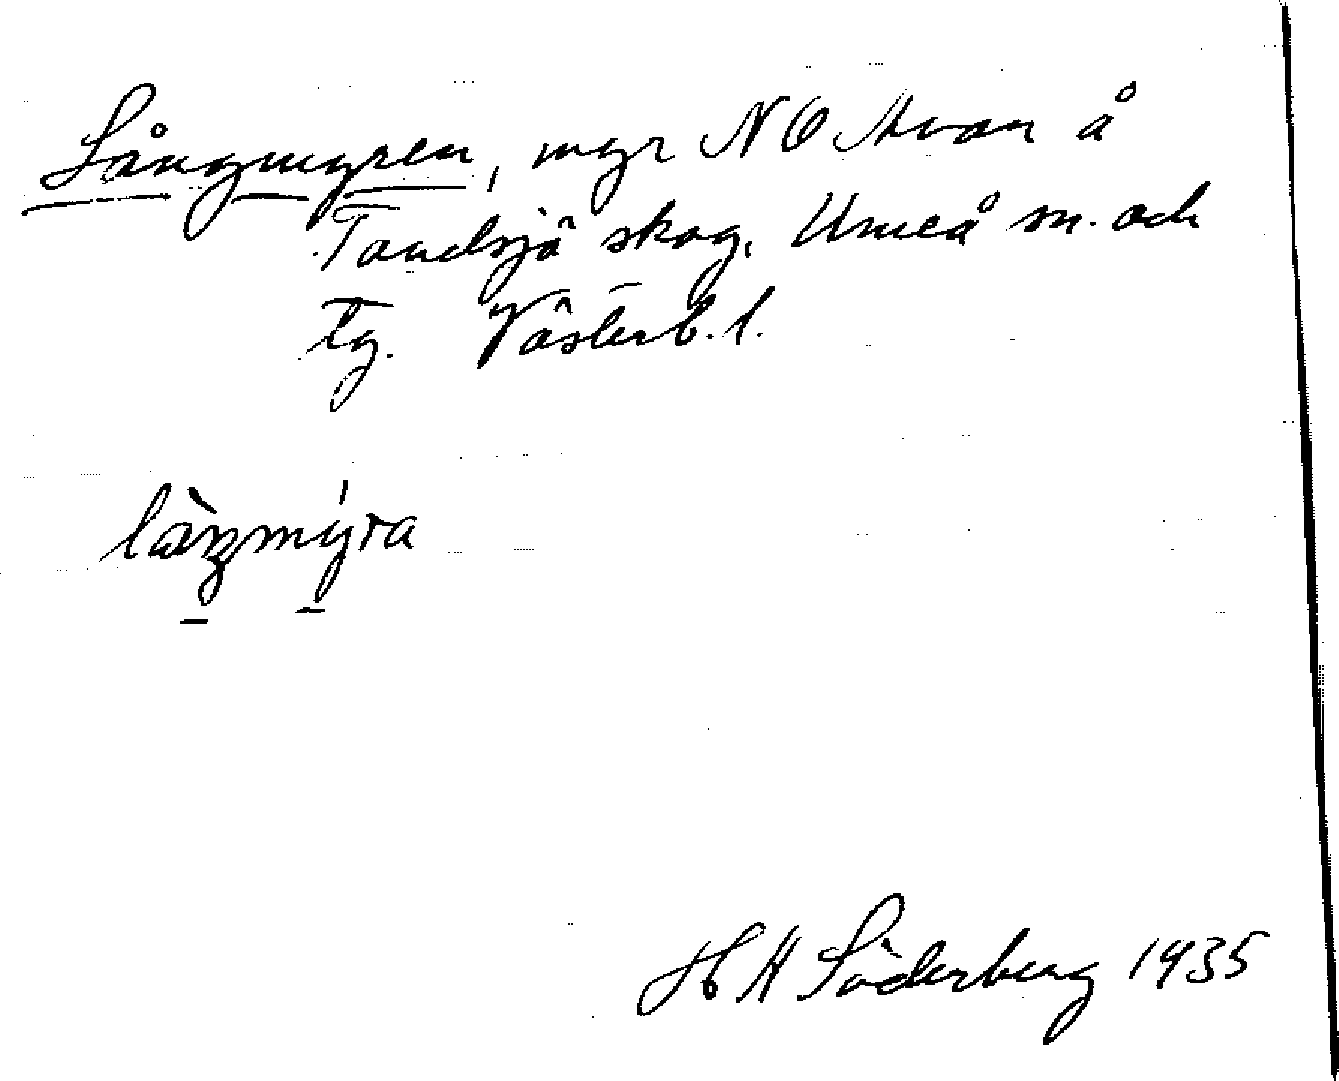 Långmyren, myr NO Avan å
Tavelsjö skog, Umeå sn. och
tg. Västerb. l.
làŋmýra
H A Söderberg 1935